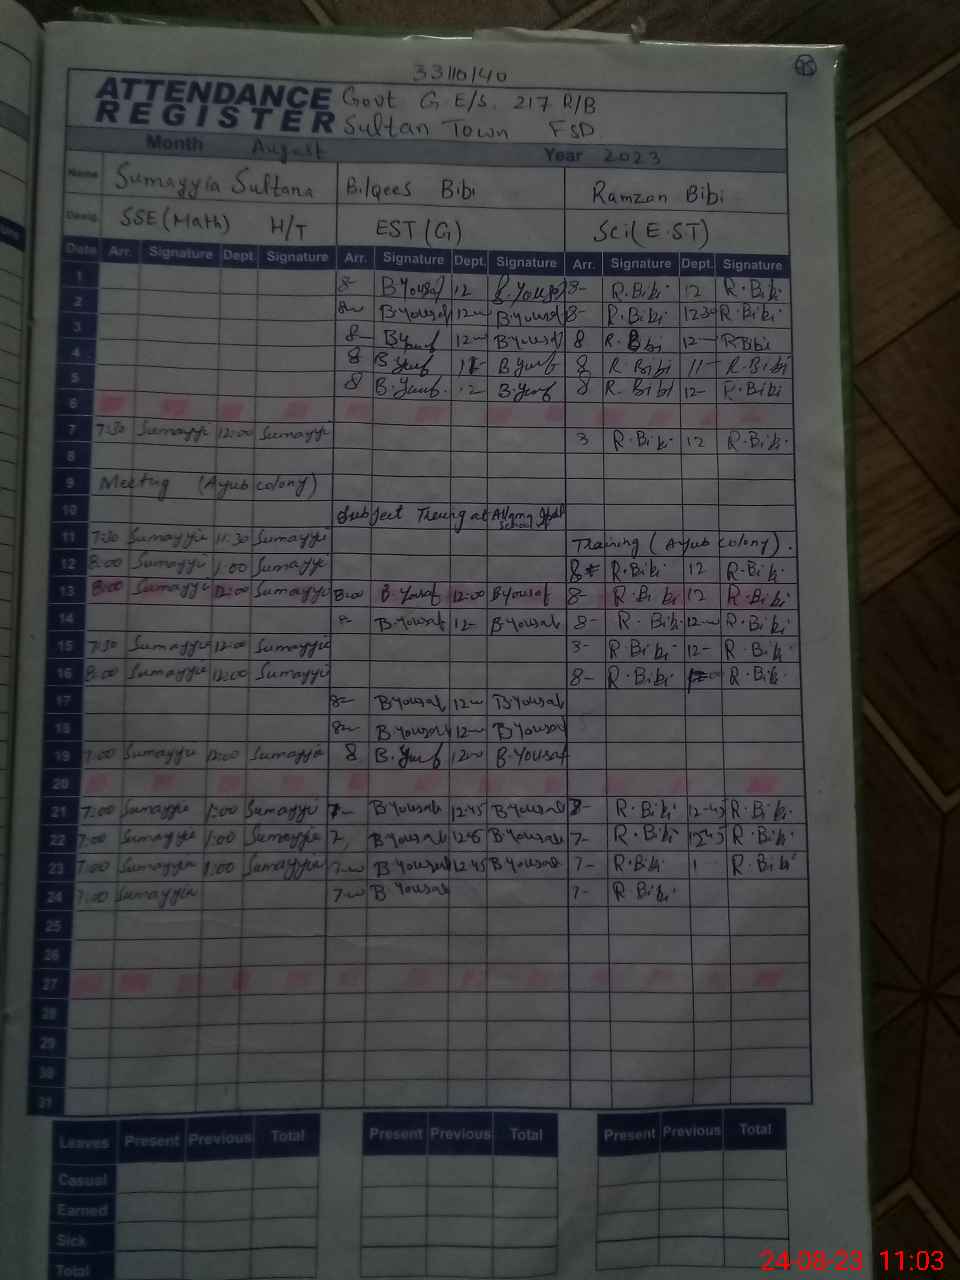 33110140
ATTENDANCE REGISTER
Govt G.E/S. 217 R/B
Sultan Town FSD.
Month August Year 2023
Name Sumayyia Sultana Bilqees Bibi Ramzan Bibi
Desig. SSE (Math) H/T EST (G) Sci (E.ST)
Date Arr. Signature Dept. Signature Arr. Signature Dept. Signature Arr. Signature Dept. Signature
1 8- B Yousaf 12 B.Yousaf 8- R.Bibi 12 R.Bibi
2 B Yousaf 12 B Yousaf 8- R.Bibi 1230 R.Bibi
3 8- 12 B Yousaf 8 R. Bibi 12 R Bibi
4 8 8 R Bibi 11- R.Bibi
5 8 12 8 R. Bibi 12- R.Bibi
6
7 7:30 Sumayyi 12:00 Sumayyi R.Bibi 12 R.Bibi
8
9 Meeting (Ayub colony)
10 Subject at Allama School
11 7:30 Sumayyi 11:30 Sumayyi Training (Ayub colony).
12 8:00 Sumayyi 1:00 Sumayyi 8 R.Bibi 12 R.Bibi
13 8:00 Sumayyi 12:00 Sumayyi 8:00 B.Yousaf 12:00 B Yousaf 8- R.Bibi 12 R.Bibi
14 B.Yousaf 12- B Yousaf 8- R.Bibi 12 R.Bibi
15 7:30 Sumayyia 12:00 Sumayyia R.Bibi 12- R.Bibi
16 8:00 Sumayyia 12:00 Sumayyi 8- R.Bibi R.Bibi
17 8- B Yousaf 12 B Yousaf
18 8- B Yousaf 12 B Yousaf
19 7:00 Sumayyi 12:00 Sumayyia 8 12 B.Yousaf
20
21 7:00 Sumayyia 1:00 Sumayyi 7- B Yousaf 12:45 B Yousaf R.Bibi 12-45 R.Bibi.
22 7:00 Sumayyia 1:00 Sumayyia B Yousaf B Yousaf 7- R.Bibi R.Bibi
23 7:00 Sumayyia 1:00 Sumayyia 7 B Yousaf 12:45 B Yousaf 7- R.Bibi 1 R.Bibi
24 7:00 Sumayyia 7 B.Yousaf 7- R.Bibi
25
26
27
28
29
30
31
Leaves Present Previous Total Present Previous Total Present Previous Total
Casual
Earned
Sick
Total
24-08-23 11:03